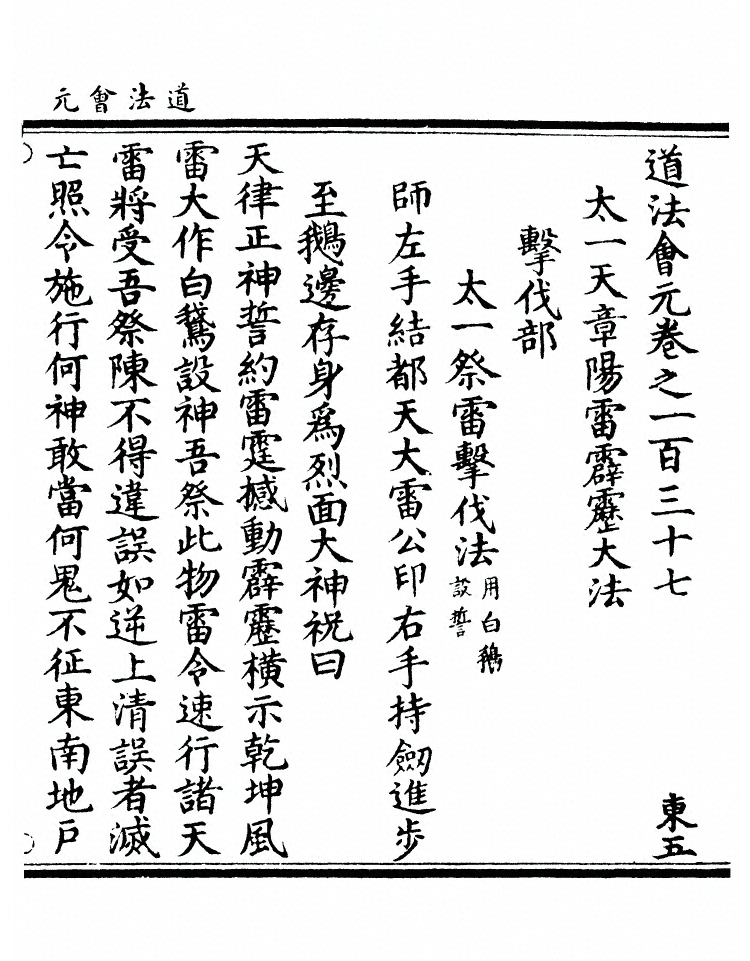 道法會元
道法會元卷之一百三十七
東五
太一天章陽雷霹靂大法
擊伐部
太一祭雷擊伐法用白鵝
設誓
師左手結都天大雷公印右手持劔進步
至鵝邊存身爲烈面大神祝曰
天律正神誓約雷霆撼動霹靂橫示乾坤風
雷大作白鵞設神吾祭此物雷令速行諸天
雷將受吾祭陳不得違誤如逆上清誤者滅
亡照令施行何神敢當何鬼不征東南地戶